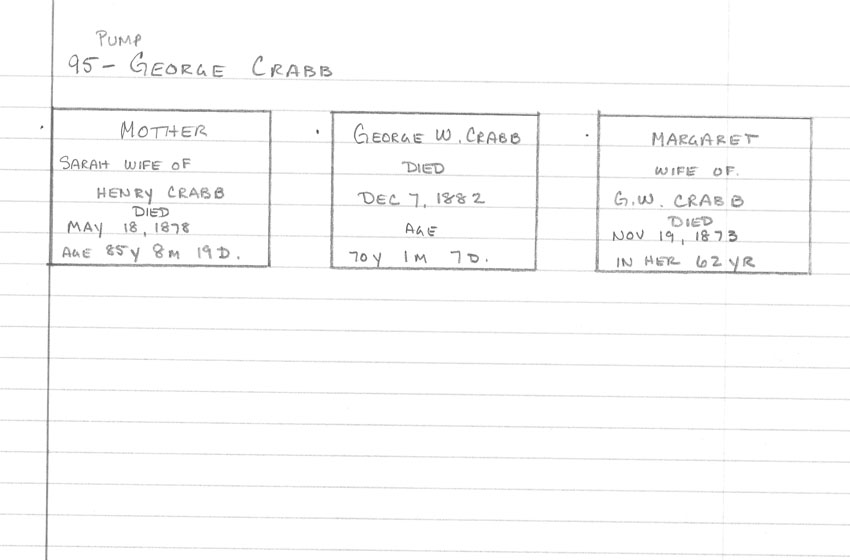 PUMP
95 - GEORGE CRABB
MOTHER
SARAH WIFE OF
HENRY CRABB
DIED
MAY 18, 1878
AGE 85Y 8M 19D.
GEORGE W. CRABB
DIED
DEC 7, 1882
AGE
70Y 1M 7D.
MARGARET
WIFE OF.
G.W. CRABB
DIED
NOV 19, 1873
IN HER 62 YR